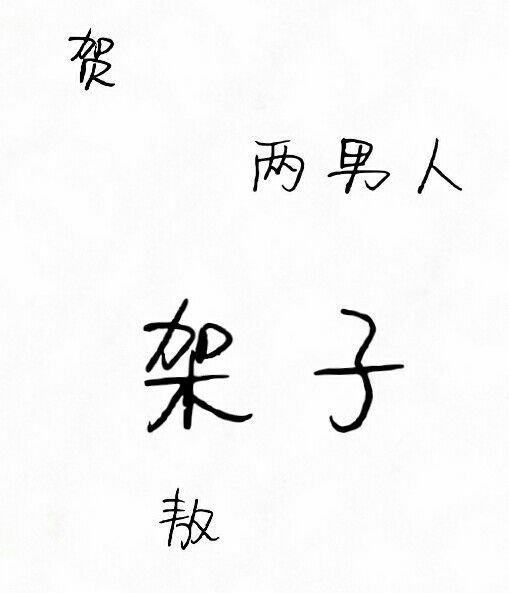 贺
两男人
架子
敖